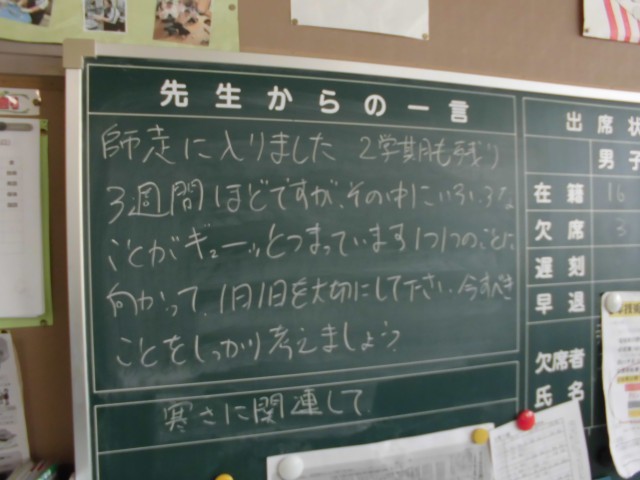 先生からの一言
師走に入りました 2学期も残り
3週間ほどですが、その中にいろいろな
ことがギューッとつまっています1つ1つのことに
向かって、1日1日を大切にして下さい。今すべき
ことをしっかり考えましょう。
寒さに関連して
出席状
男子
在籍 16
欠席 3
遅刻
早退
欠席者
氏名